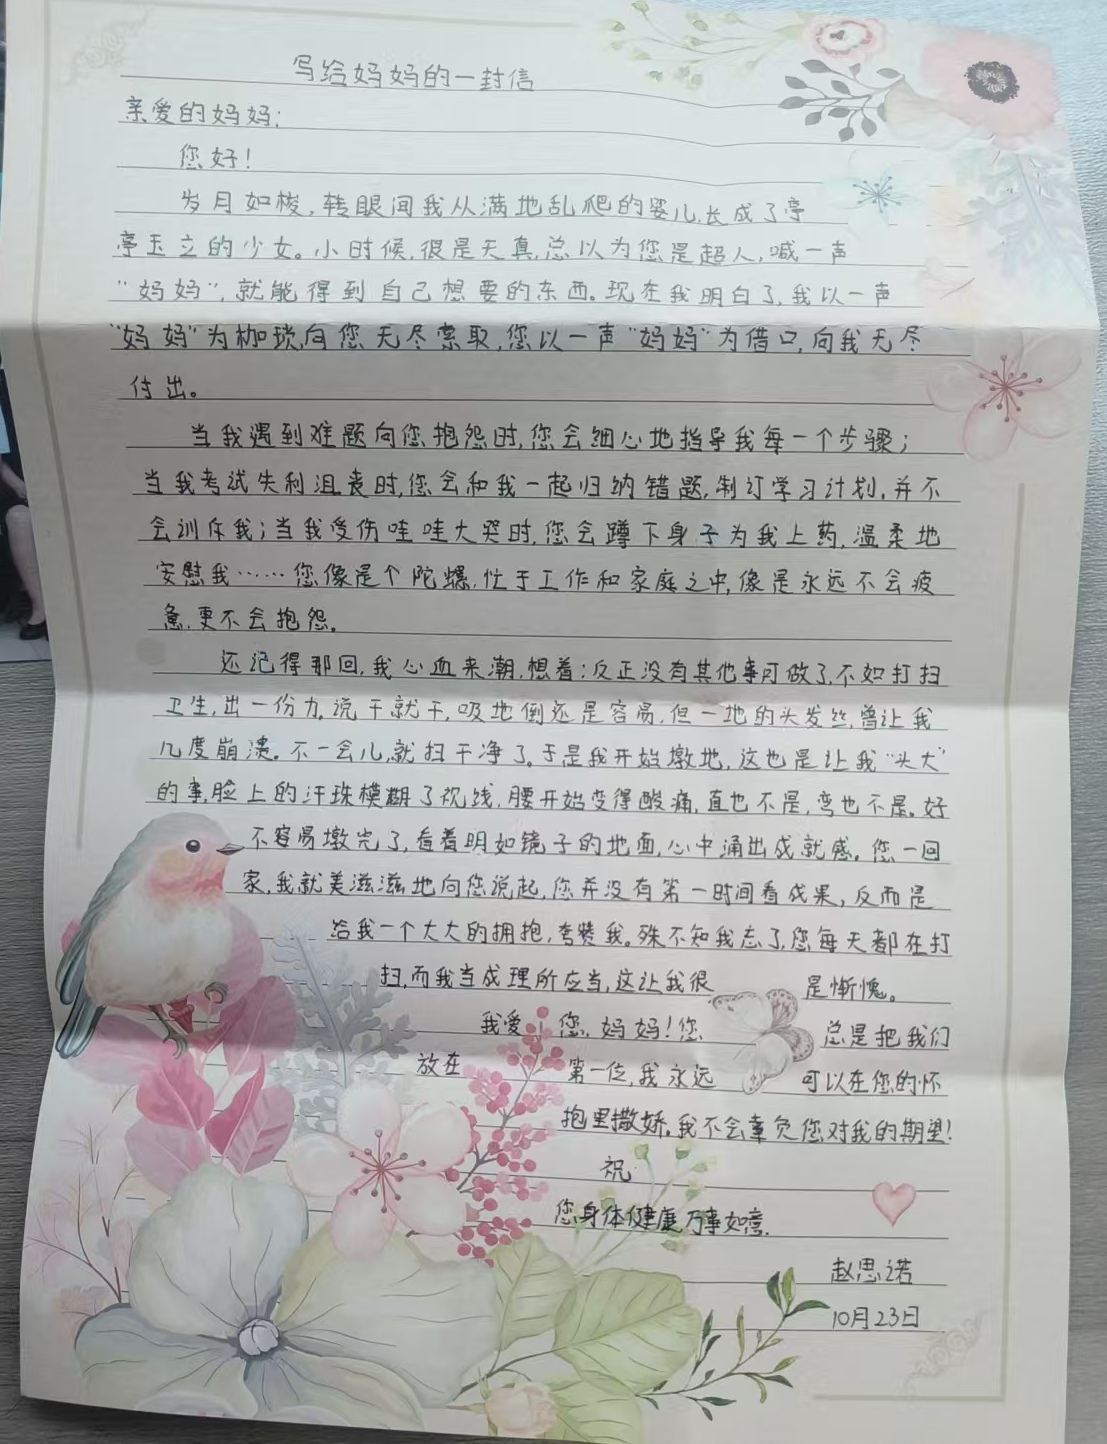 写给妈妈的一封信
亲爱的妈妈:
您好!
岁月如梭,转眼间我从满地乱爬的婴儿,长成了亭
亭玉立的少女。小时候,很是天真,总以为您是超人,喊一声
“妈妈”,就能得到自己想要的东西。现在我明白了,我以一声
“妈妈”为枷锁,向您无尽索取,您以一声“妈妈”为借口,向我无尽
付出。
当我遇到难题向您抱怨时,您会细心地指导我每一个步骤;
当我考试失利沮丧时,您会和我一起归纳错题,制订学习计划,并不
会训斥我;当我受伤哇哇大哭时,您会蹲下身子为我上药,温柔地
安慰我……您像是个陀螺,忙于工作和家庭之中,像是永远不会疲
惫,更不会抱怨。
还记得那回,我心血来潮,想着:反正没有其他事可做了,不如打扫
卫生,出一份力。说干就干,吸地倒还是容易,但一地的头发丝,曾让我
几度崩溃。不一会儿,就扫干净了。于是我开始墩地,这也是让我“头大”
的事,脸上的汗珠模糊了视线,腰开始变得酸痛,直也不是,弯也不是。好
不容易墩完了,看着明如镜子的地面,心中涌出成就感。您一回
家,我就美滋滋地向您说起,您并没有第一时间看成果,反而是
给我一个大大的拥抱,夸赞我。殊不知我忘了,您每天都在打
扫,而我当成理所应当,这让我很是惭愧。
我爱您,妈妈!您总是把我们
放在第一位,我永远可以在您的怀
抱里撒娇。我不会辜负您对我的期望!
祝
您身体健康,万事如意。
赵思诺
10月23日